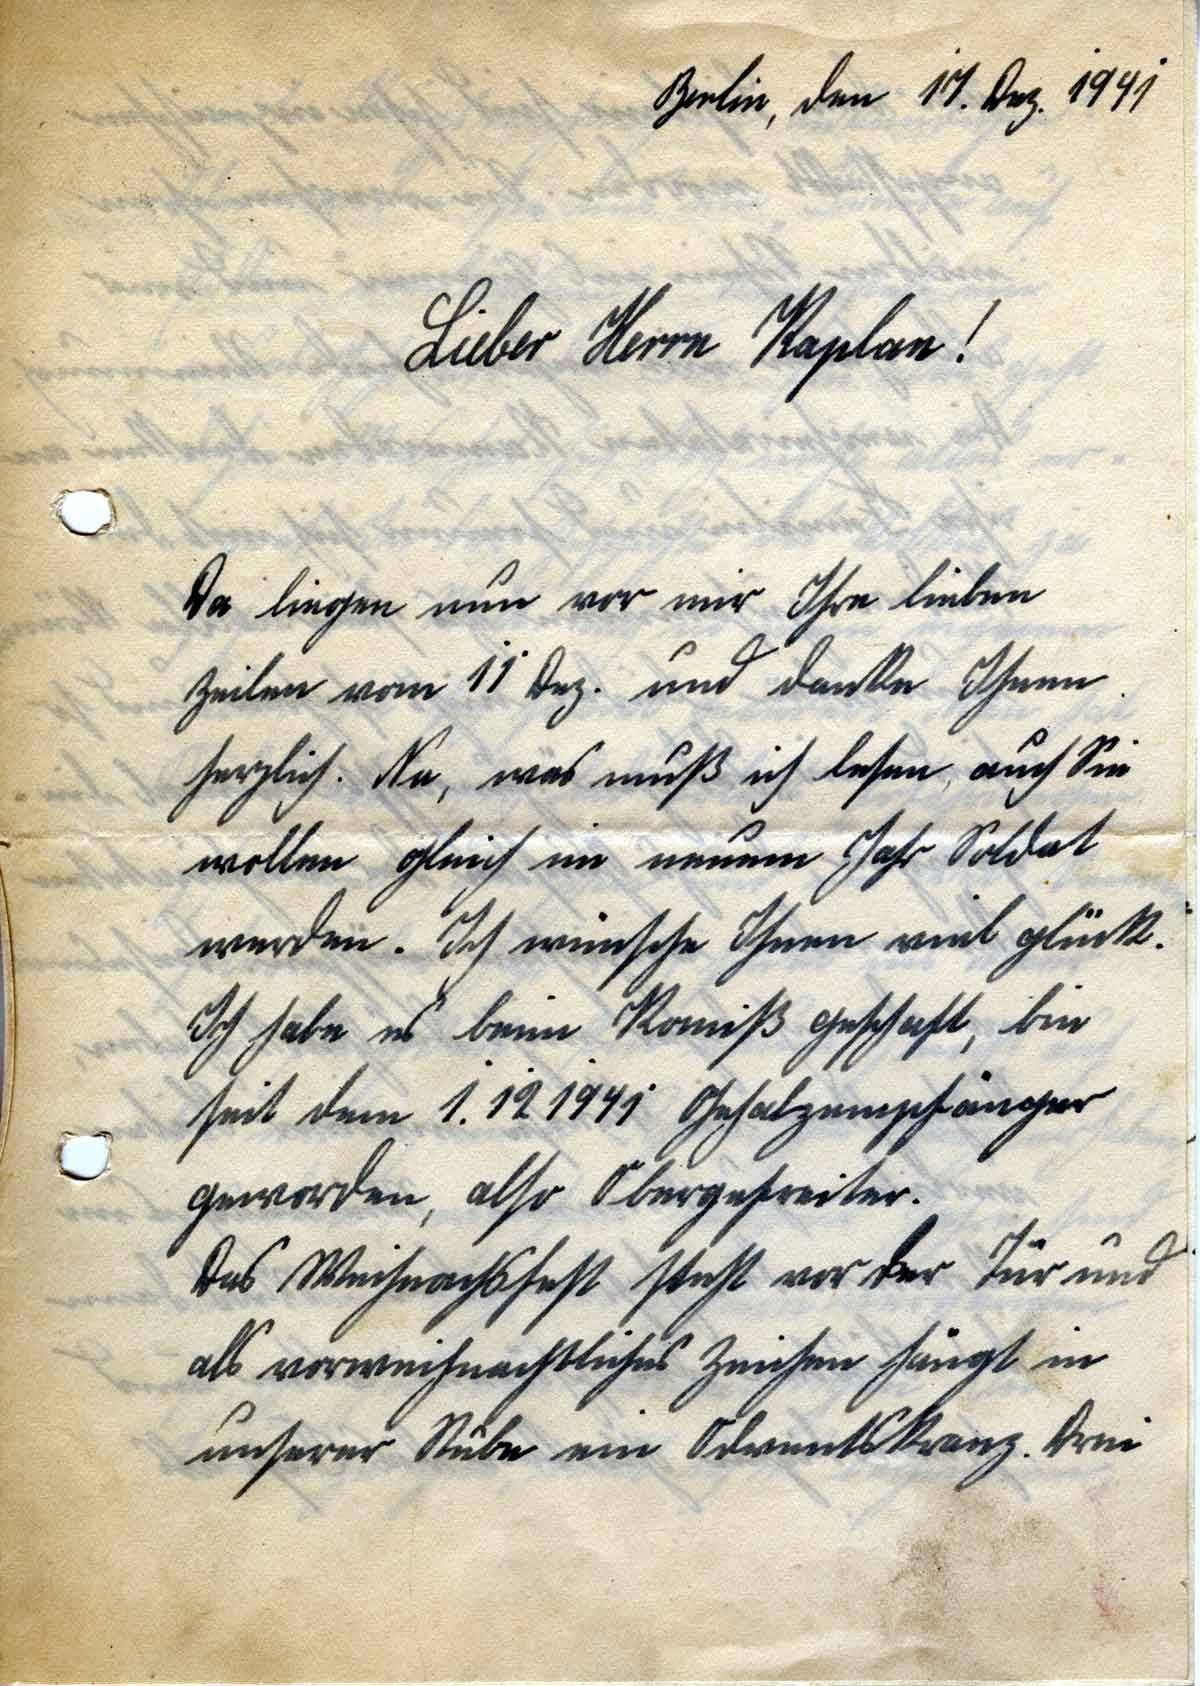 Berlin, den 17. Dez. 1941
Lieber Herrn Kaplan!
Da liegen nun vor mir Ihre lieben
Zeilen vom 11 Dez. und danke Ihnen
herzlich. Na, was muß ich lesen, auch Sie
wollen gleich im neuem Jahr Soldat
werden. Ich wünsche Ihnen viel glück.
Ich habe es beim Komiß geschaft, bin
seit dem 1.12 1941 Gehalzempfänger
geworden, also Obergefreiter.
Das Weihnachsfest steht vor der Tür und
als vorweihnachtliches Zeichen hängt in
unserer Stube ein Adventskranz. Drei